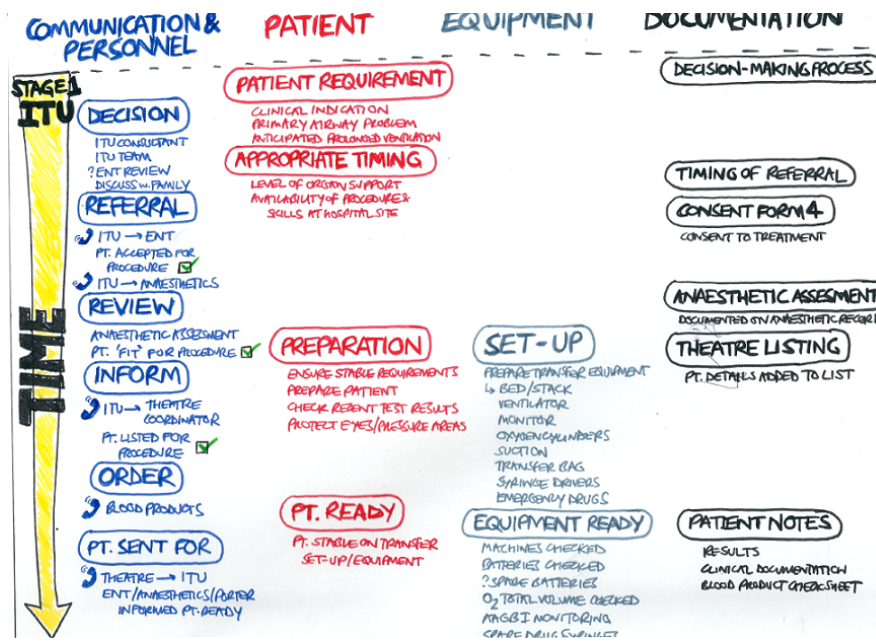 COMMUNICATION &
PERSONNEL
PATIENT
EQUIPMENT
DOCUMENTATION
STAGE 1
ITU
TIME
DECISION
ITU CONSULTANT
ITU TEAM
? ENT REVIEW
DISCUSS W. FAMILY
REFERRAL
ITU → ENT
PT. ACCEPTED FOR
PROCEDURE
ITU → ANAESTHETICS
REVIEW
ANAESTHETIC ASSESSMENT
PT. 'FIT' FOR PROCEDURE
INFORM
ITU → THEATRE
COORDINATOR
PT. LISTED FOR
PROCEDURE
ORDER
BLOOD PRODUCTS
PT. SENT FOR
THEATRE → ITU
ENT/ANAESTHETICS/PORTER
INFORMED PT. READY
PATIENT REQUIREMENT
CLINICAL INDICATION
PRIMARY AIRWAY PROBLEM
ANTICIPATED PROLONGED VENTILATION
APPROPRIATE TIMING
LEVEL OF ORGAN SUPPORT
AVAILABILITY OF PROCEDURE &
SKILLS AT HOSPITAL SITE
PREPARATION
ENSURE STABLE REQUIREMENTS
PREPARE PATIENT
CHECK RECENT TEST RESULTS
PROTECT EYES/PRESSURE AREAS
PT. READY
PT. STABLE ON TRANSFER
SET-UP/EQUIPMENT
SET-UP
PREPARE TRANSFER EQUIPMENT
↳ BED/STACK
VENTILATOR
MONITOR
OXYGEN CYLINDERS
SUCTION
TRANSFER BAG
SYRINGE DRIVERS
EMERGENCY DRUGS
EQUIPMENT READY
MACHINES CHECKED
BATTERIES CHECKED
? SPARE BATTERIES
O₂ TOTAL VOLUME CHECKED
AAGBI MONITORING
SPARE DRUG SYRINGES
DECISION-MAKING PROCESS
TIMING OF REFERRAL
CONSENT FORM 4
CONSENT TO TREATMENT
ANAESTHETIC ASSESMENT
DOCUMENTED ON ANAESTHETIC RECORD
THEATRE LISTING
PT. DETAILS ADDED TO LIST
PATIENT NOTES
RESULTS
CLINICAL DOCUMENTATION
BLOOD PRODUCT CHECKSHEET